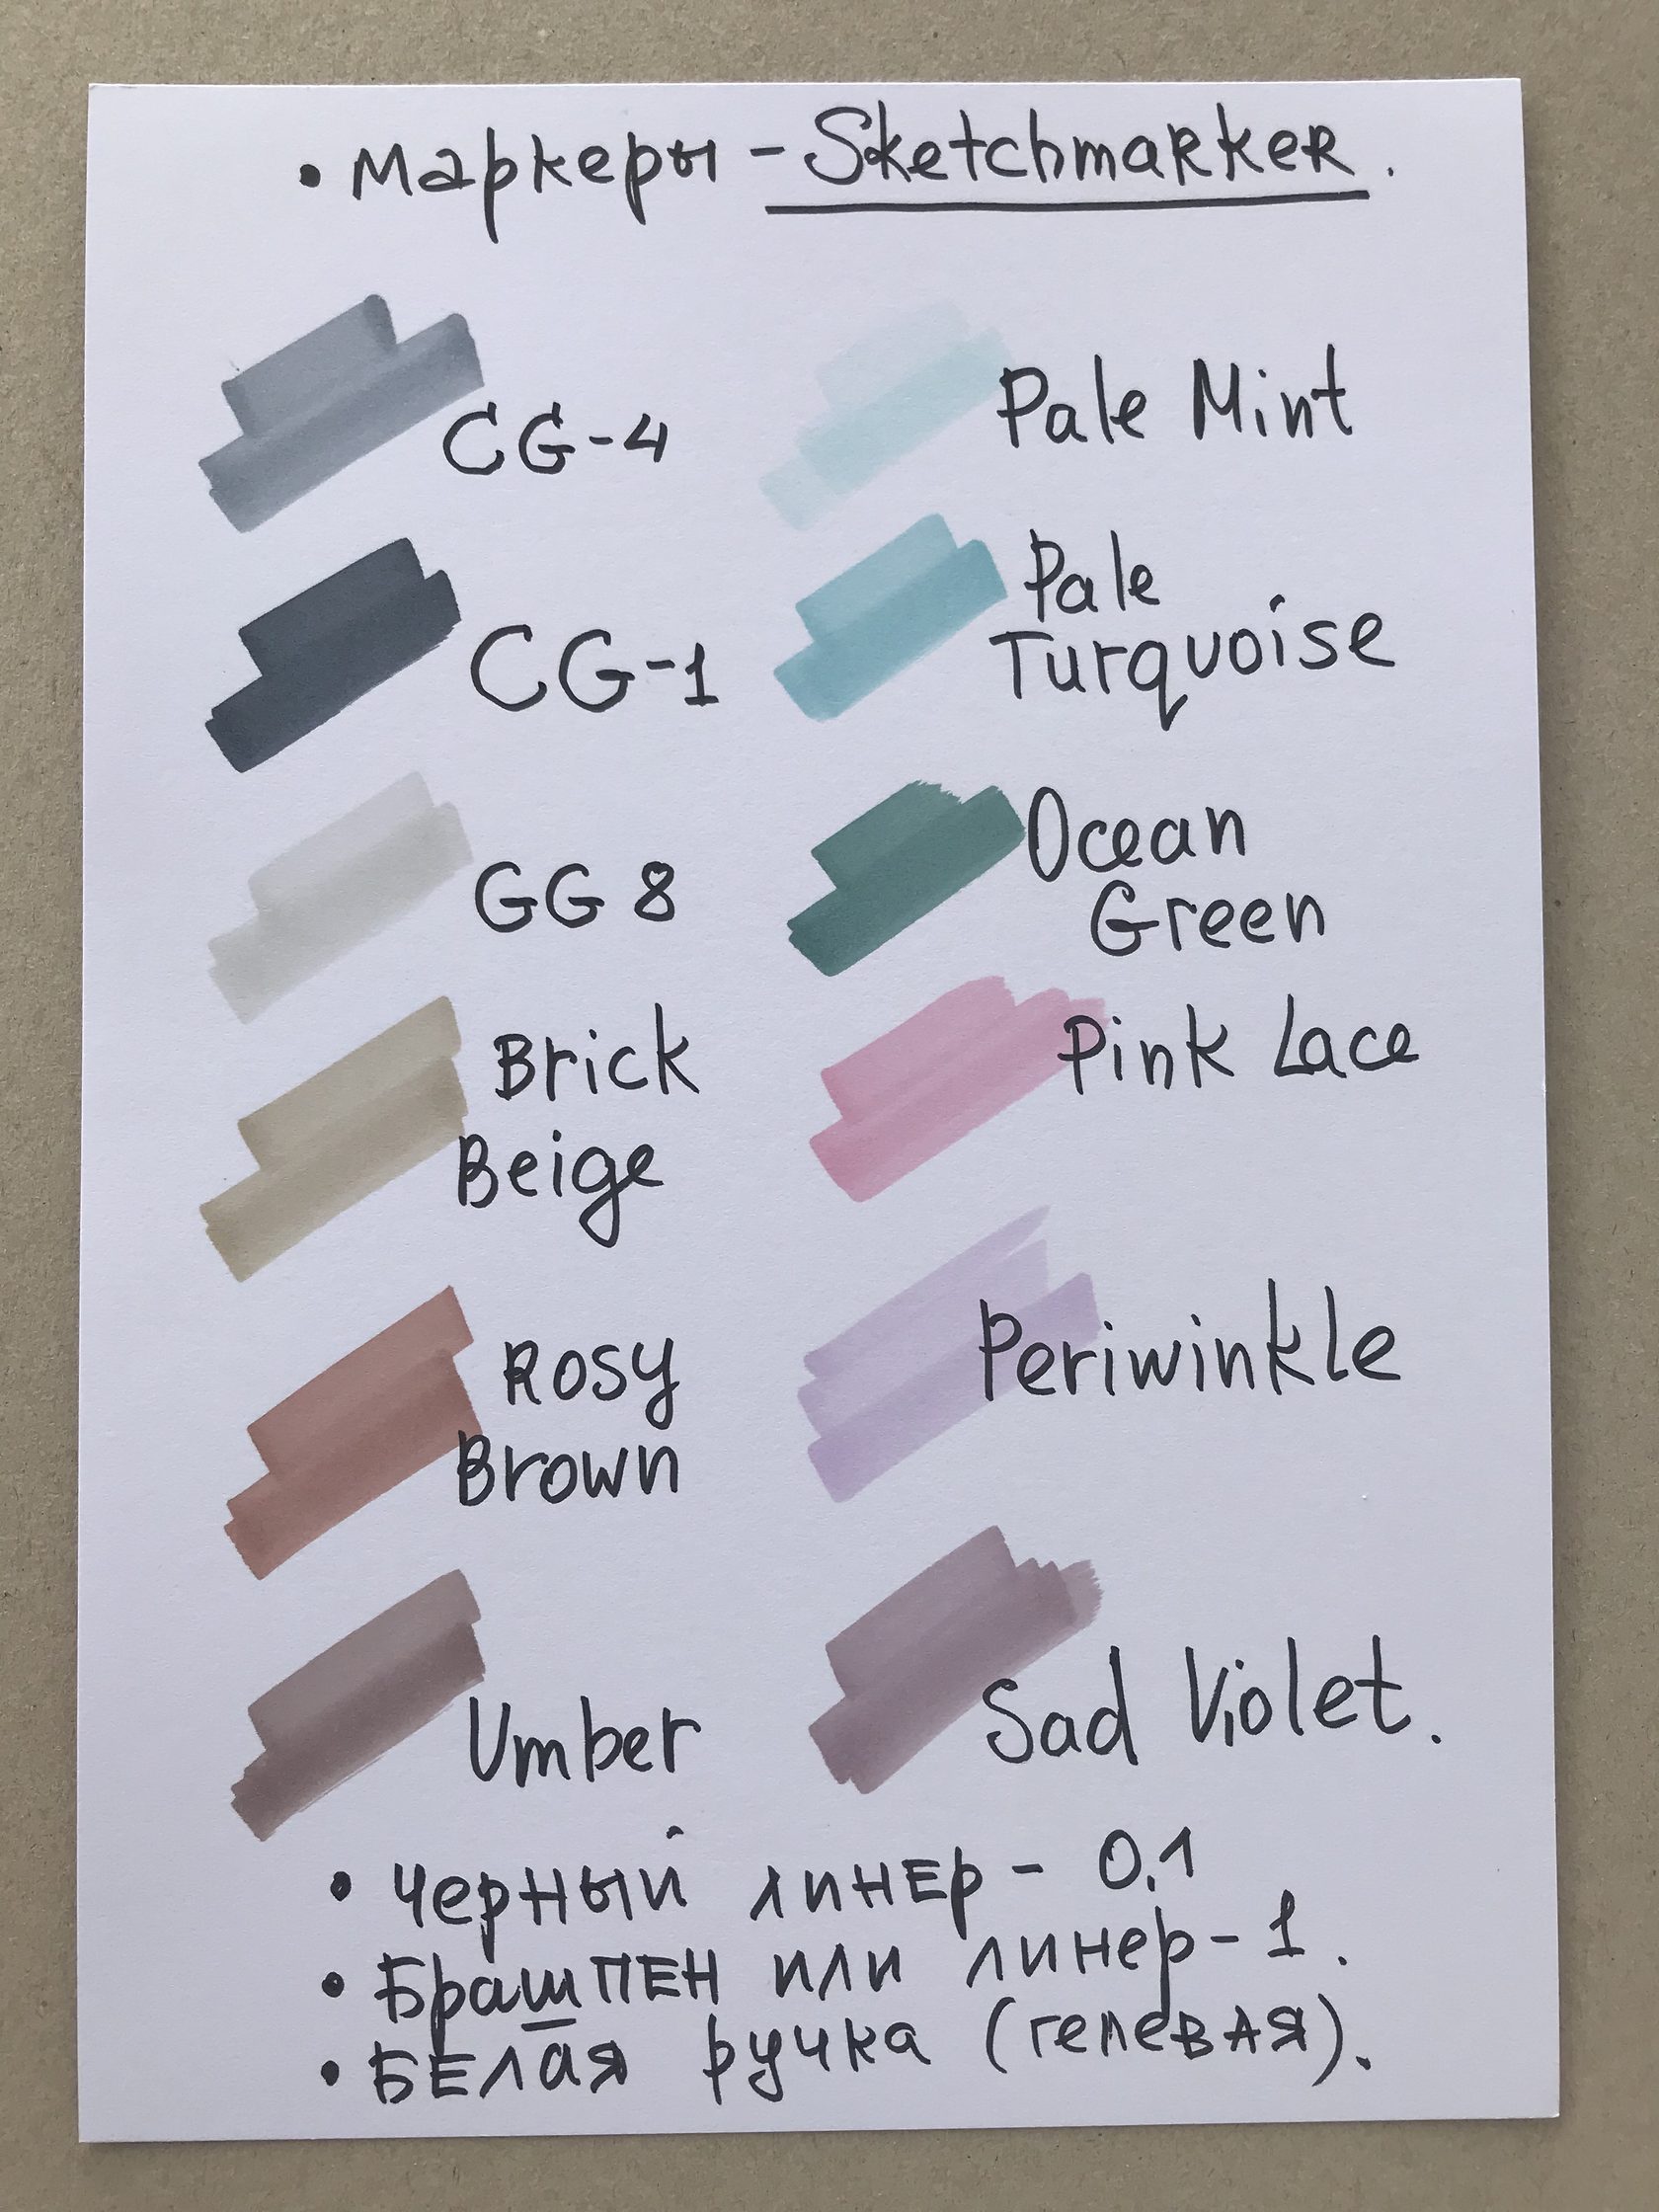 • Маркеры - Sketchmarker.
CG-4
CG-1
GG 8
Brick
Beige
Rosy
Brown
Umber
Pale Mint
Pale
Turquoise
Ocean
Green
Pink Lace
Periwinkle
Sad Violet.
• Черный линер - 0.1
• Брашпен или линер - 1.
• Белая ручка (гелевая).